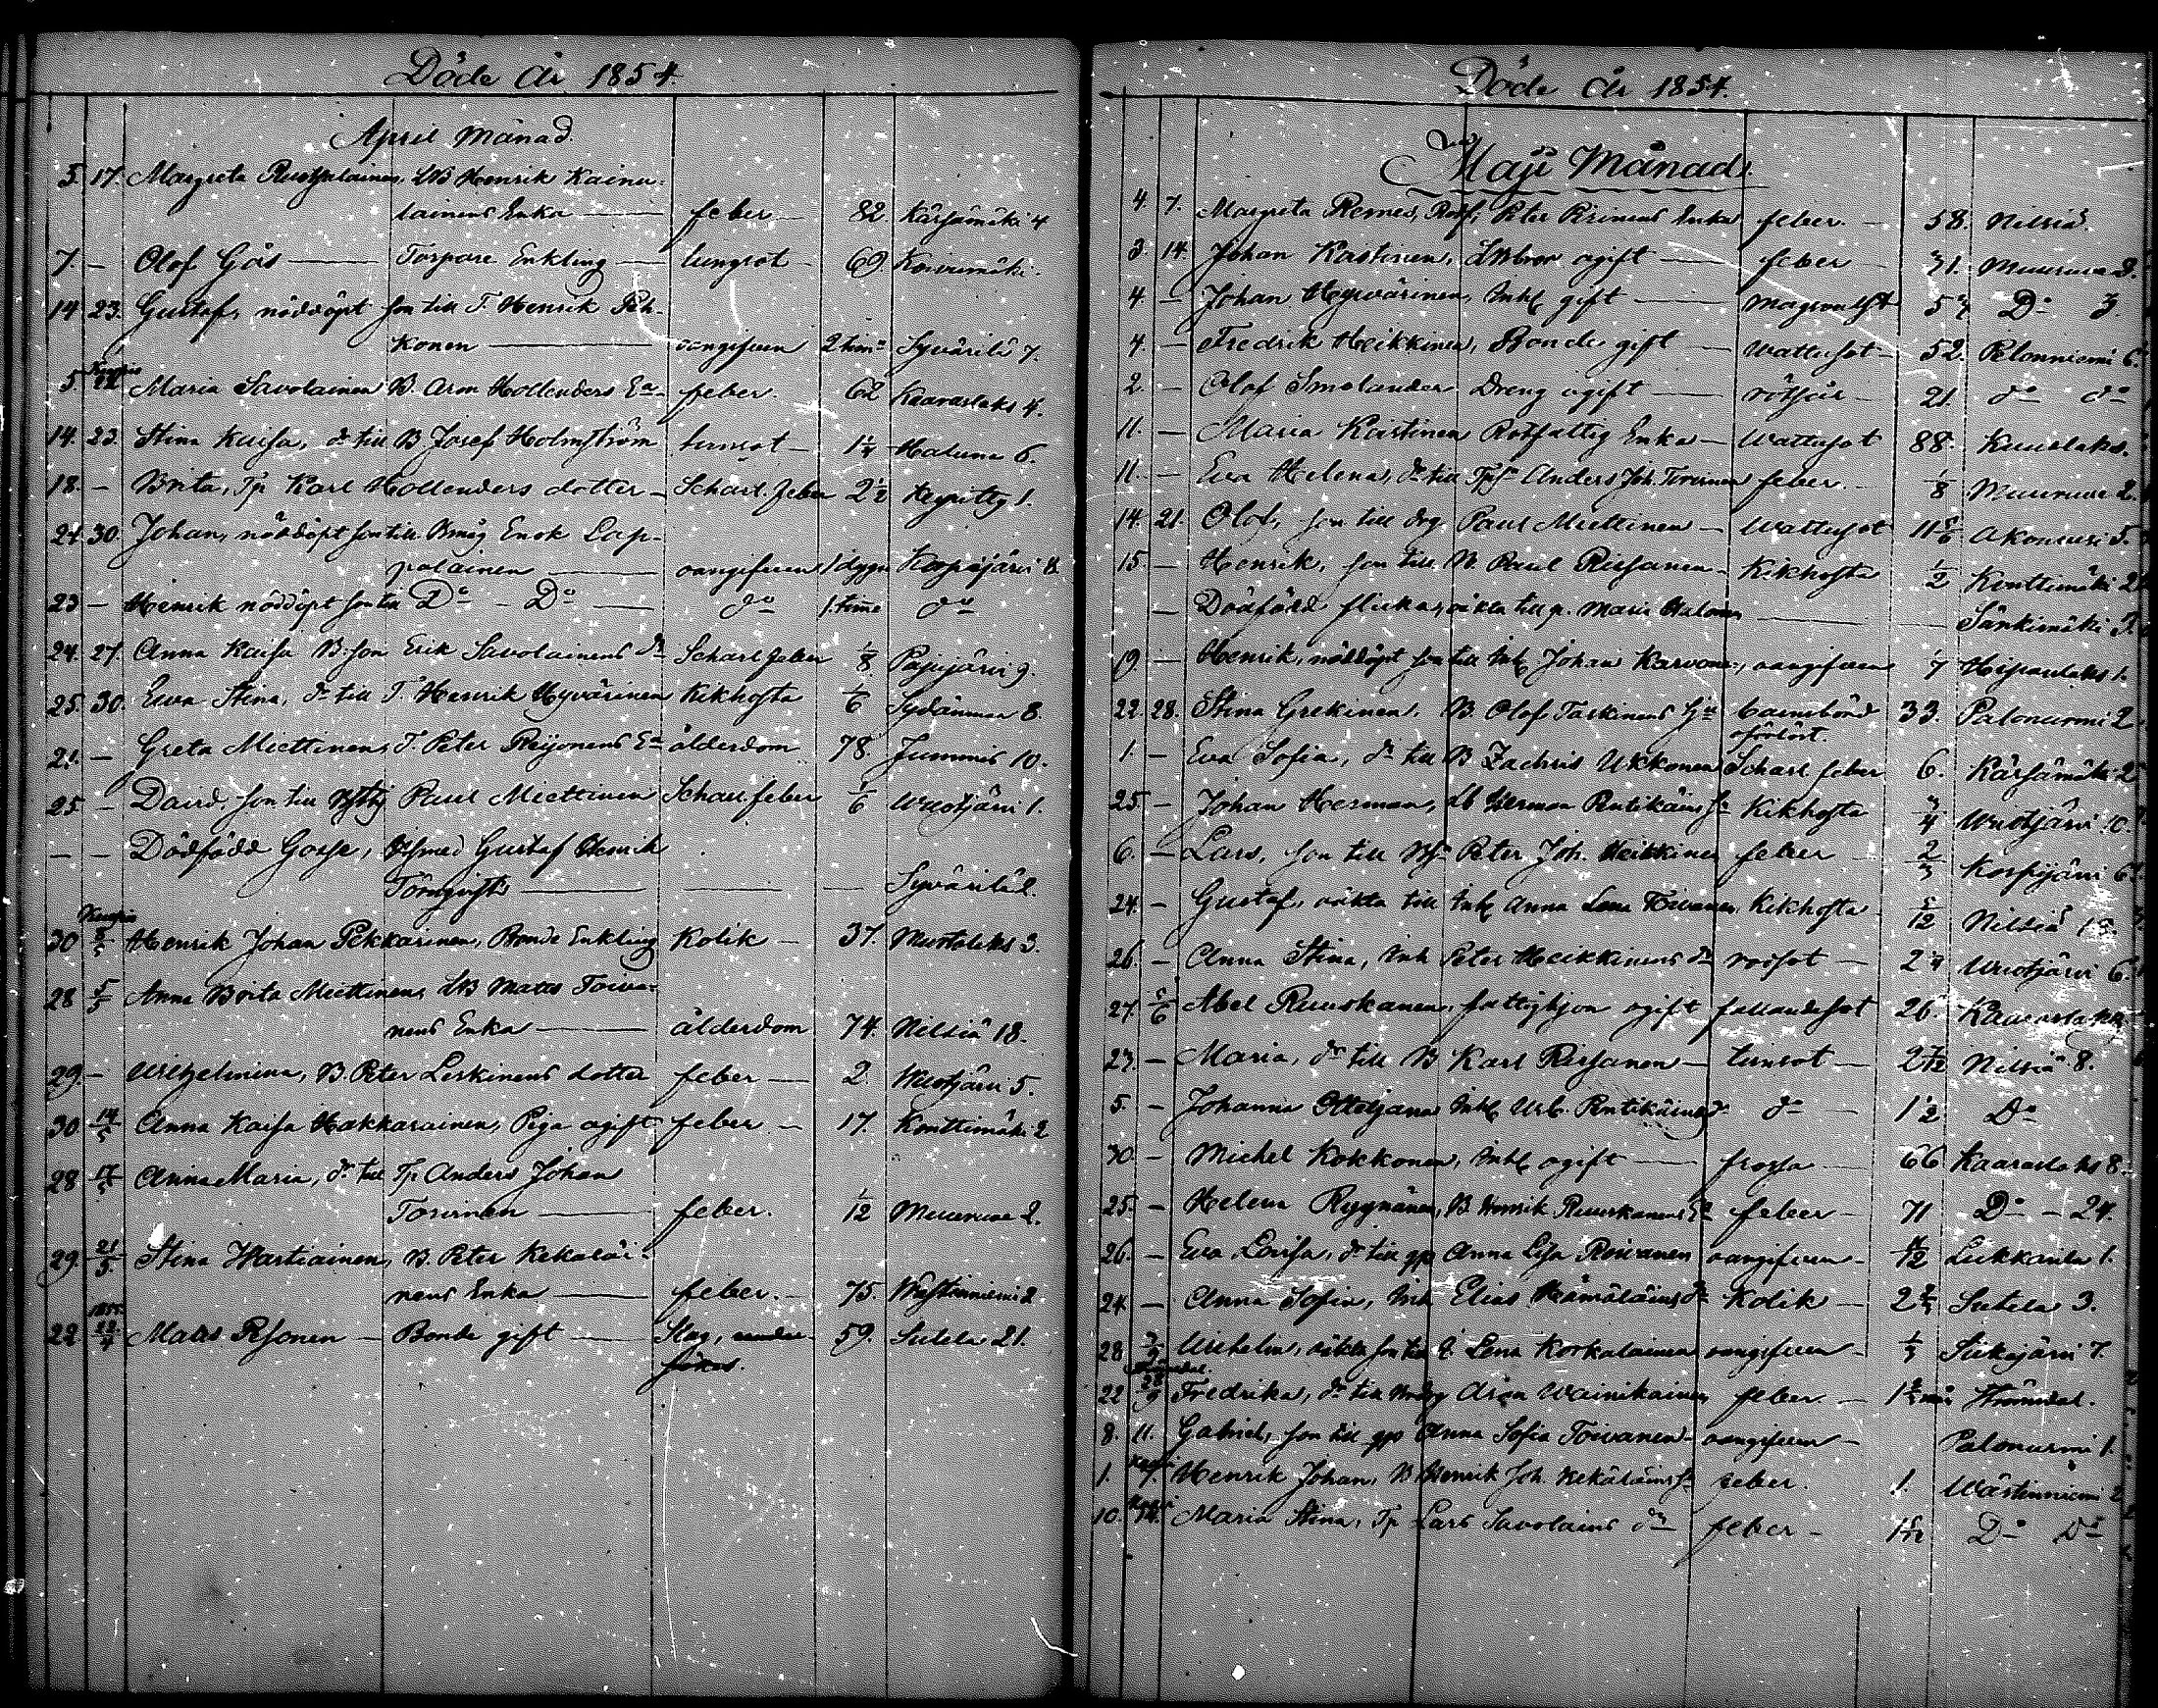 Döde År 1854.
April Månad.
5. 17. Margreta LB Henrik Kainu-
lainens Enka — feber — 82 Kärsämäki 4
7. — Olof Gås — Torpare Enkling — lungsot — 69. Koivumäki.
14 23. Gustaf, nöddöpt son till T. Henrik Pch-
konen — oangifven 2 tim Syvärilä 7.
5 Kuopio Maria Savolainen B. Aron Hollenders Ea feber. 62 Kaaraslaks 4.
14. 23. Stina Kaisa, dr till B Josef Holmström — 1 1/4 Haluna 6.
18. — Brita, Tp Karl Hollenders dotter — Scharl. feber 2 1/2 1.
24. 30. Johan, nöddöpt son till Enok Lap-
palainen — oangifven 1 dygn 8
23 — Henrik nöddöpt son till Do — Do — do 1. time do
24. 27. Anna Kaisa B. son Erik Savolainens dr Scharl feber 1/8 Pajujärvi 9.
25. 30. Ewa Stina, dr till T. Henrik Hyvärinen Kikhosta 1/6 Sydänmaa 8.
21. — Greta Miettinen, T. Peter Reijonens Ea ålderdom 78. Juminis 10.
25 — David, son till Paul Miettinen Scharl. feber 1/6 Wuotjärvi 1.
— — Dödfödd Gosse, Gustaf Henrik
Törnqvists — — — Syvärilä 2.
30 Kuopio 8/5 Henrik Johan Pekkarinen, Bonde Enkling Kolik — 37. Murtolaks 3.
28 5/5 Anna Brita Miettinen, LB Matts Toiva-
nens Enka — ålderdom 74. Nilsiä 18.
29. — Wilhelmina, B. Peter Leskinens dotter feber — 2. Wuotjärvi 5.
30 14/5 Anna Kaisa Hakkarainen, Piga ogift feber — 17. Konttimäki 2
28 17/5 Anna Maria, dr till Tp. Anders Johan
Toivinen — feber. 1/12 Muuruvesi 2.
29. 21/5 Stina Hartiainen, B. Peter Kekäläi-
nens Enka — feber. — 75. Westinniemi 2
22 1855 Matts — Bonde gift — Slag, 59. Sutela 21.
Döde År 1854.
Maji Månad.
4. 7. Margreta Remes, Rotf. Peter Enka feber. — 58. Nilsiä.
3. 14. Johan Kastinen, ogift — feber — 31. Muuruvesi 8.
4. — Johan Hyvärinen, Inh gift — 57 Do 3.
4. — Fredrik Heikkinen, Bonde gift — Wattusot — 52. Pelonniemi 6.
2. — Olof Smolander Dreng ogift — rötsår — 21. do do
11. — Maria Kastinen Rotfattig Enka — Wattusot 88. Kuuslaks.
11. — Eva Helena, dr till Anders Joh. Toivinen feber. — 1/8 Muuruvesi 2.
14. 21. Olof, son till drg Paul Miettinen — Wattusot 11 5/6 Akonvesi 5.
15. — Henrik, son till B. Paul Rissanen — Kikhosta 1/2 Konttimäki 2
— Dödfödd flicka, oäkta till p. Maria — — Sänkimäki
19. — Henrik, nöddöpt son till Inh Johan Karvonen, oangifven 1/7 1.
22. 28. Stina Grekinen. B. Olof Taskinens Hu barnsbörd 33. Palonurmi 2
förlöst.
1. — Eva Sofia, dr till B Zachris Ukkonen Scharl feber 6. Kärsämäki 2
25. — Johan Herman, LB Herman Pentikäins sn Kikhosta 3/4 Wuotjärvi 10.
6. — Lars, son till Peter Joh. Heikkinen feber — 2/3 Korpijärvi 6
24. — Gustaf, oäkta till Inh Anna Lena Toivanen, Kikhosta 5/12 Nilsiä 13.
26. — Anna Stina, Inh Peter Heikkinens dr rosot — 2 3/4 Wuotjärvi 6.
27. 5/6 Abel Ruuskanen, fattighjon ogift fallandesot 26. Kaaraslaks
23. — Maria, dr till B Karl Rissanen — — 2 7/12 Nilsiä 8.
5. — Johanna Inh Urb. Pentikäins dr do — 1 1/2 Do
30 — Michel Kokkonen, Inh ogift — frossa — 66 Kaaraslaks 8.
25. — Helena Ryynänen, B. Henrik Ruuskanens Ea feber — 71 Do — 24.
26. — Eva Lovisa, dr till gp Anna Lisa Roivanen oangifven — Lukkarila 1.
24. — Anna Sofia, Inh Elias Hämäläins dr Kolik — 2 2/3 Sutela 3.
28 Wilhelm, oäkta son till p. Lena Korkalainen oangifven — 1/3 Siikajärvi 7.
22 Strömsdal Fredrika, dr till Aron Wainikainen feber. — Strömsdal.
8. 11. Gabriel, son till gp Anna Sofia Toivanen — oangifven — Palonurmi 1.
1. Henrik Johan, B Henrik Joh. Kekäläins sn feber. 1. Wästinniemi 2
10. Maria Stina, Tp Lars Savolains dr feber — Do Do